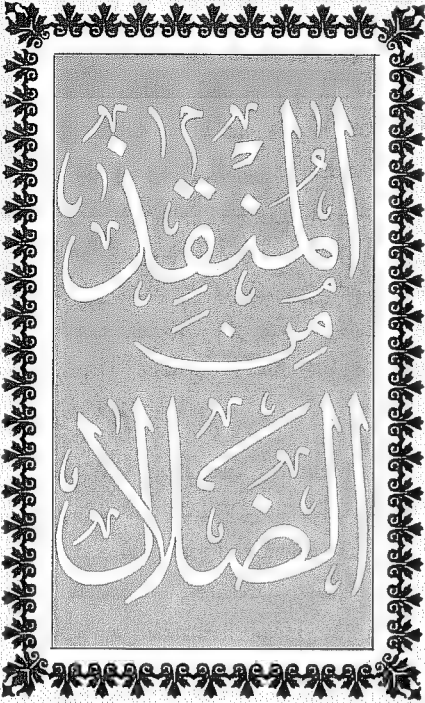 المُنْقِذ
مِن
الضلال